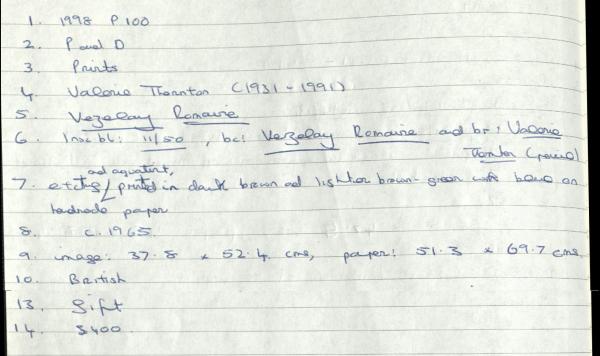 1. 1998 P 100
2. P and D
3. Prints
4. Valerie Thornton (1931 - 1991)
5. Vezelay Romaine
6. Insc bl: 11/50, bc: Vezelay Romaine and br: Valerie
Thornton (pencil)
and aquatint,
7. etching / printed in dark brown and lighter brown-green with blue on
handmade paper
8. c. 1965.
9. image: 37.8 x 52.4 cms, paper: 51.3 x 69.7 cms.
10. British
13. Gift
14. $400